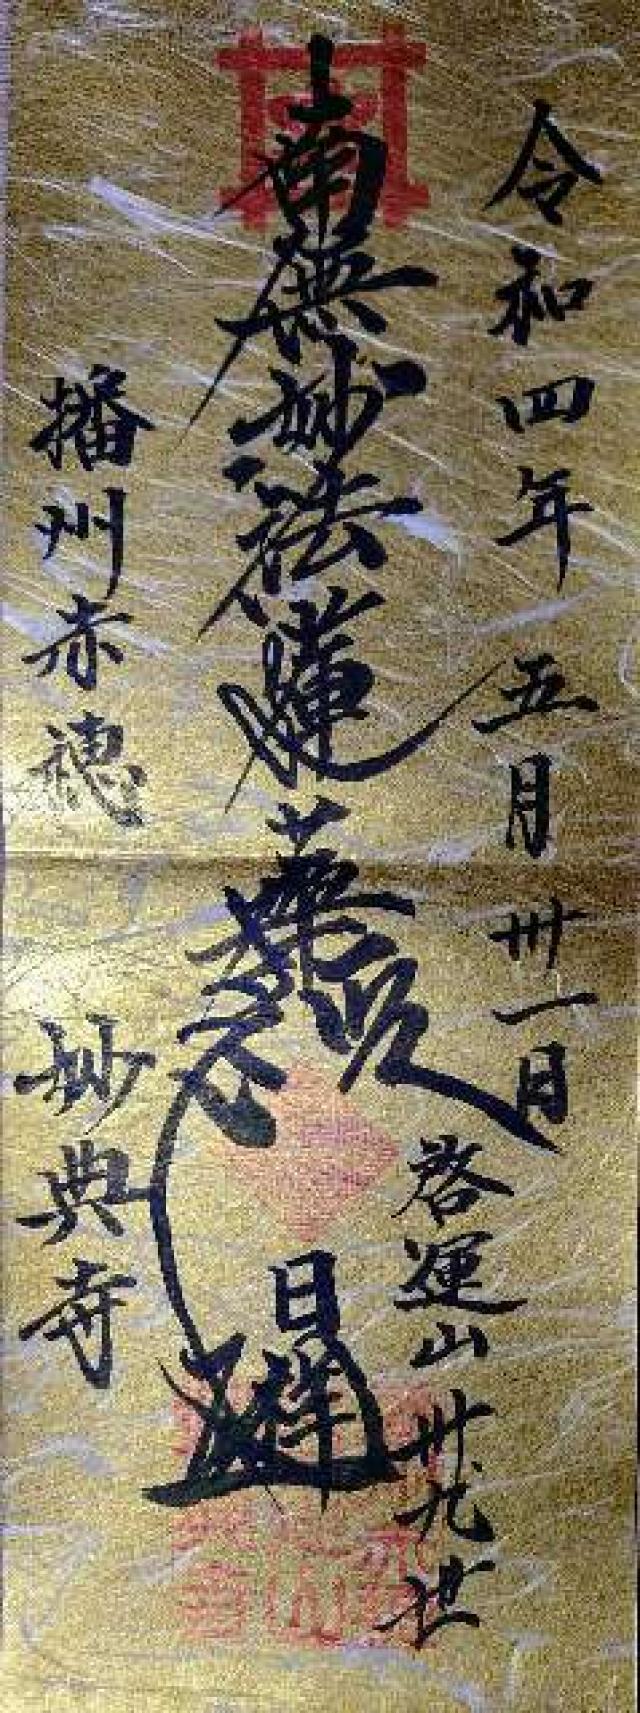 令和四年 五月 卅一日
啓運山 卅九世
南無妙法蓮華経
日
播州赤穂 妙典寺